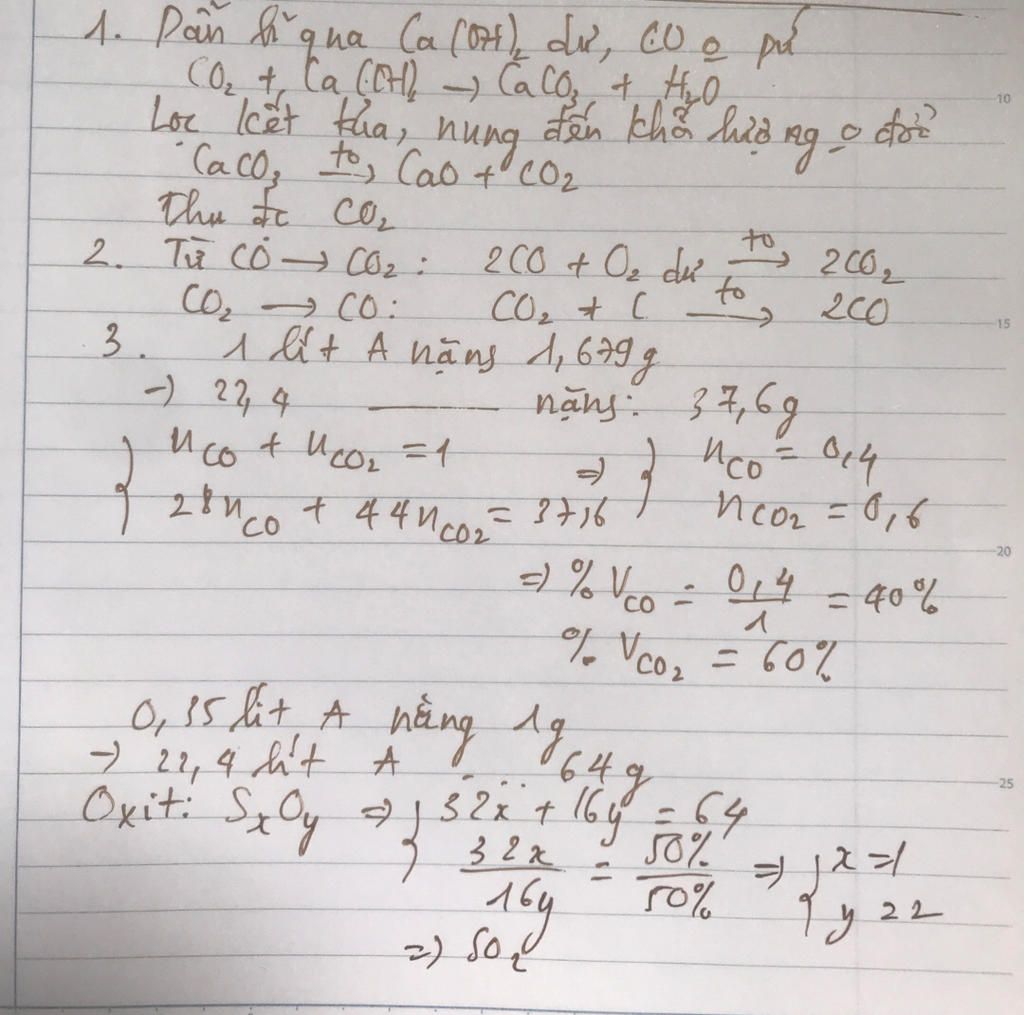 1. Dẫn khí qua Ca(OH)2 dư, CO o pứ
CO2 + Ca(OH)2 → CaCO3 + H2O
Lọc kết tủa, nung đến khối lượng o đổi
CaCO3 to→ CaO + CO2
thu đc CO2
2. Từ CO → CO2: 2CO + O2 dư to→ 2CO2
CO2 → CO: CO2 + C to→ 2CO
3. 1 lít A nặng 1,679g
→ 22,4 — nặng: 37,6g
{ nCO + nCO2 = 1 ⇒ { nCO = 0,4
28nCO + 44nCO2 = 37,6 nCO2 = 0,6
⇒ % VCO = 0,4/1 = 40%
% VCO2 = 60%
0,35 lít A nặng 1g
→ 22,4 lít A ... 64g
Oxit: SxOy ⇒ { 32x + 16y = 64
32x/16y = 50%/50% ⇒ { x = 1
y = 2
⇒ SO2
10
15
20
25